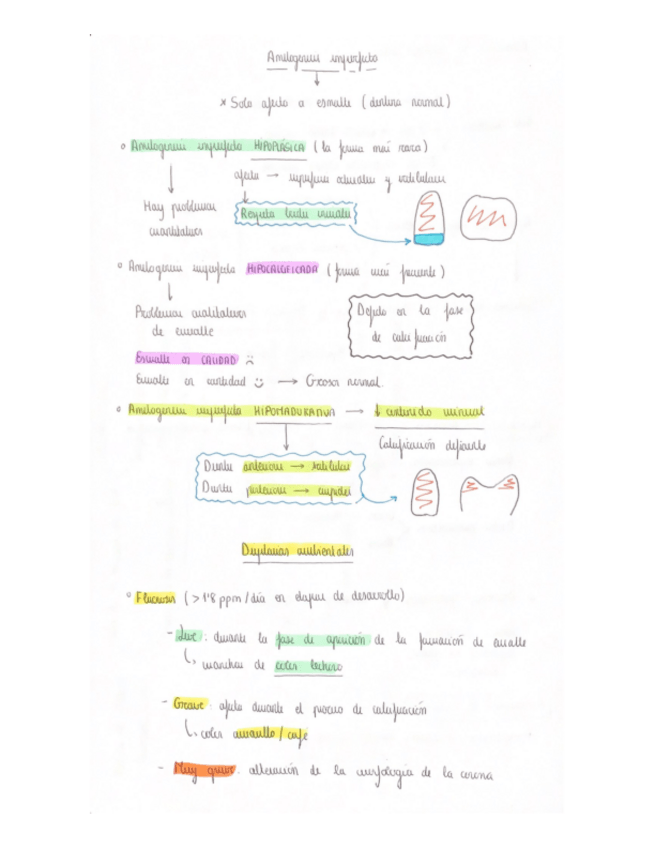 Amilogenesis imperfecta
* Solo afecta a esmalte (dentina normal)
Amilogenesis imperfecta HIPOPLÁSICA (la forma más rara)
afecta → superficies oclusales y vestibulares
Hay problemas
cuantitativos
Respeta tercio cervical
Amilogenesis imperfecta HIPOCALCIFICADA (forma más frecuente)
Problemas cualitativos
de esmalte
Defecto en la fase
de calcificación
Esmalte en CALIDAD :(
Esmalte en cantidad :) → Grosor normal.
Amilogenesis imperfecta HIPOMADURATIVA → ↓ contenido mineral
Calcificación deficiente
Dientes anteriores → vestibular
Dientes posteriores → cúspides
Displasias ambientales
Fluorosis (>1'8 ppm/día en etapas de desarrollo)
- Leve: durante la fase de aposición de la formación de esmalte
↳ manchas de color lechoso
- Grave: afecta durante el proceso de calcificación
↳ color amarillo / café
- Muy grave: alteración de la morfología de la corona